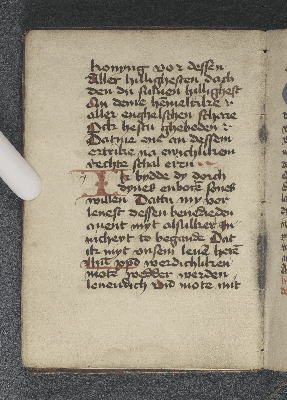 konyng vor dessen
Aller hillighesten dach
den du suluen hillighest
An deme hemelrike v
aller enghelschen schare
Ock hestu gheboden
Datme ene an dessem
ertrike na
rechte schal eren
Ik bydde dy dorch
dynes enboren sones
willen Dattu my vor
lenest dessen benedieden
auent myt alsulker in
nicheyt to begande Dat
ik myt vnsem leuen heren
werdichliken
mote wedder werden
leuendich vnd mote mit